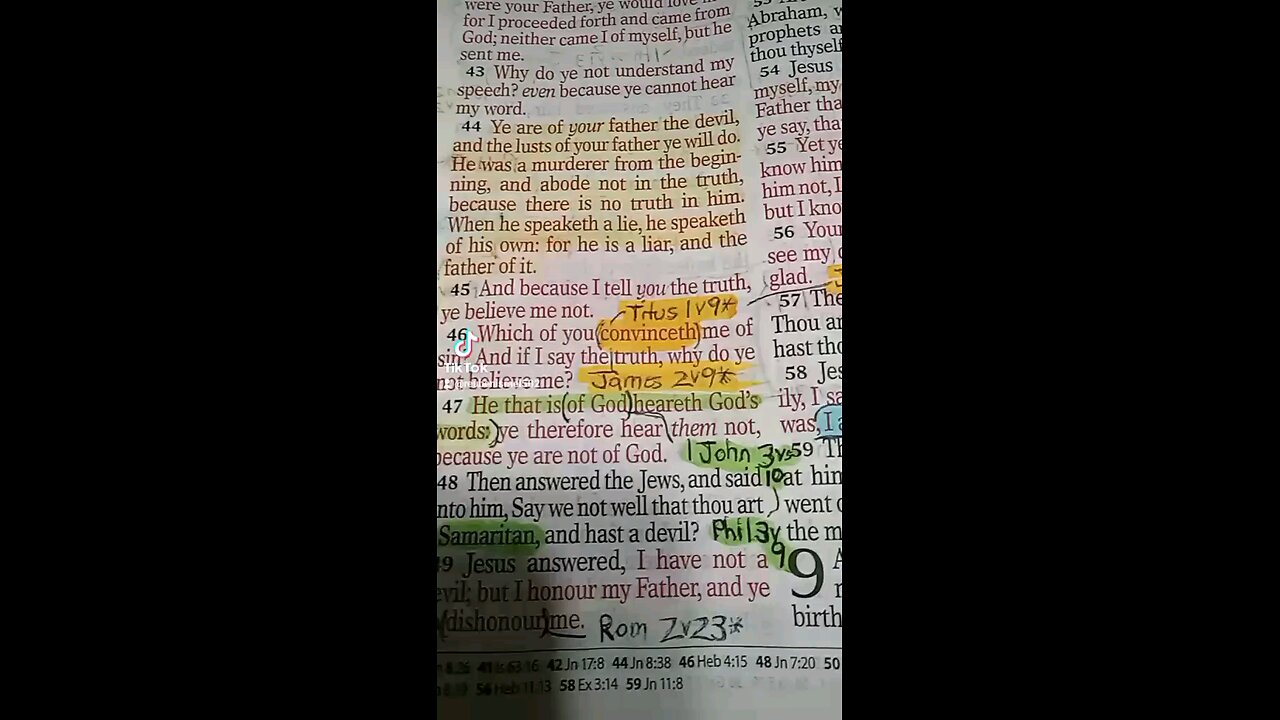 were your Father, ye would love
for I proceeded forth and came from
God; neither came I of myself, but he
sent me.
43 Why do ye not understand my
speech? even because ye cannot hear
my word.
44 Ye are of your father the devil,
and the lusts of your father ye will do.
He was a murderer from the begin-
ning, and abode not in the truth,
because there is no truth in him.
When he speaketh a lie, he speaketh
of his own: for he is a liar, and the
father of it.
45 And because I tell you the truth,
ye believe me not. Titus 1v9*
46 Which of you (convinceth) me of
sin? And if I say the truth, why do ye
not believe me? James 2v9*
47 He that is (of God) heareth God's
words:) ye therefore hear them not,
because ye are not of God. 1 John 3vs
10
48 Then answered the Jews, and said
nto him, Say we not well that thou art
Samaritan, and hast a devil? Phil 3v
9
9 Jesus answered, I have not a
evil; but I honour my Father, and ye
(dishonour) me. Rom 2v23*
TikTok
Abraham,
prophets
thou thyself
54 Jesus
myself, my
Father tha
ye say, tha
55 Yet ye
know him
him not, I
but I kno
56 Your
see my
glad.
57 The
Thou ar
hast tho
58 Jes
ily, I sa
was, I
59 Th
at him
went
the m
9
birth
42 Jn 17:8 44 Jn 8:38 46 Heb 4:15 48 Jn 7:20 50
56 Heb 11:13 58 Ex 3:14 59 Jn 11:8